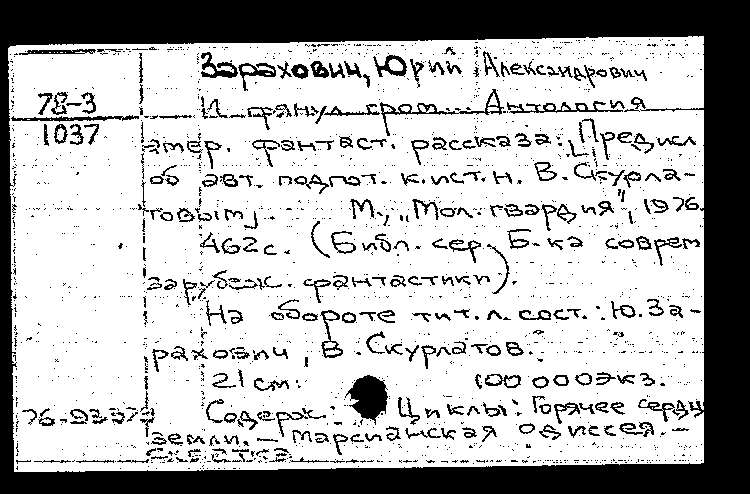 Зарахович, Юрий Александрович
78-3
1037
И грянул гром... Антология
амер. фантаст. рассказа: [Предисл
об авт. подгот. к.ист.н. В. Скурла-
товым]. М., „Мол. гвардия", 1976.
462 с. (Библ. сер. Б-ка соврем
зарубеж. фантастики).
На обороте тит. л. сост.: Ю. За-
рахович, В. Скурлатов.
21 см. 100 000 экз.
76-93373
Содерж.: Циклы: Горячее сердц
земли. — Марсианская одиссея. —
Схватка.